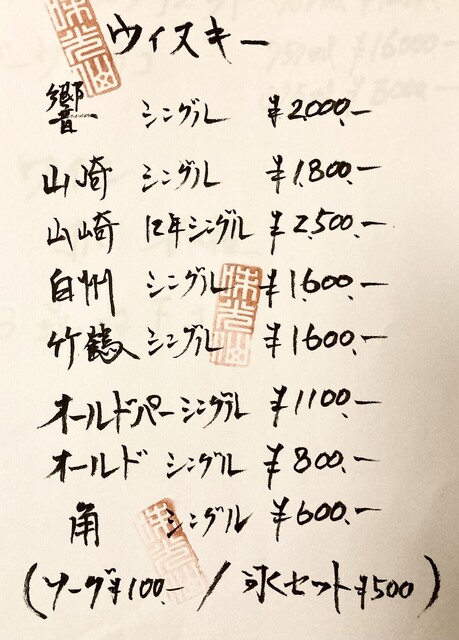 ウィスキー
響 シングル ¥2,000.-
山崎 シングル ¥1,800.-
山崎 12年シングル ¥2,500.-
白州 シングル ¥1,600.-
竹鶴 シングル ¥1600.-
オールドパーシングル ¥1100.-
オールド シングル ¥800.-
角 シングル ¥600.-
(ソーダ¥100.- / 氷セット¥500)